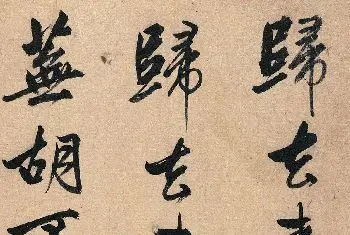 歸去
歸去
蕪胡